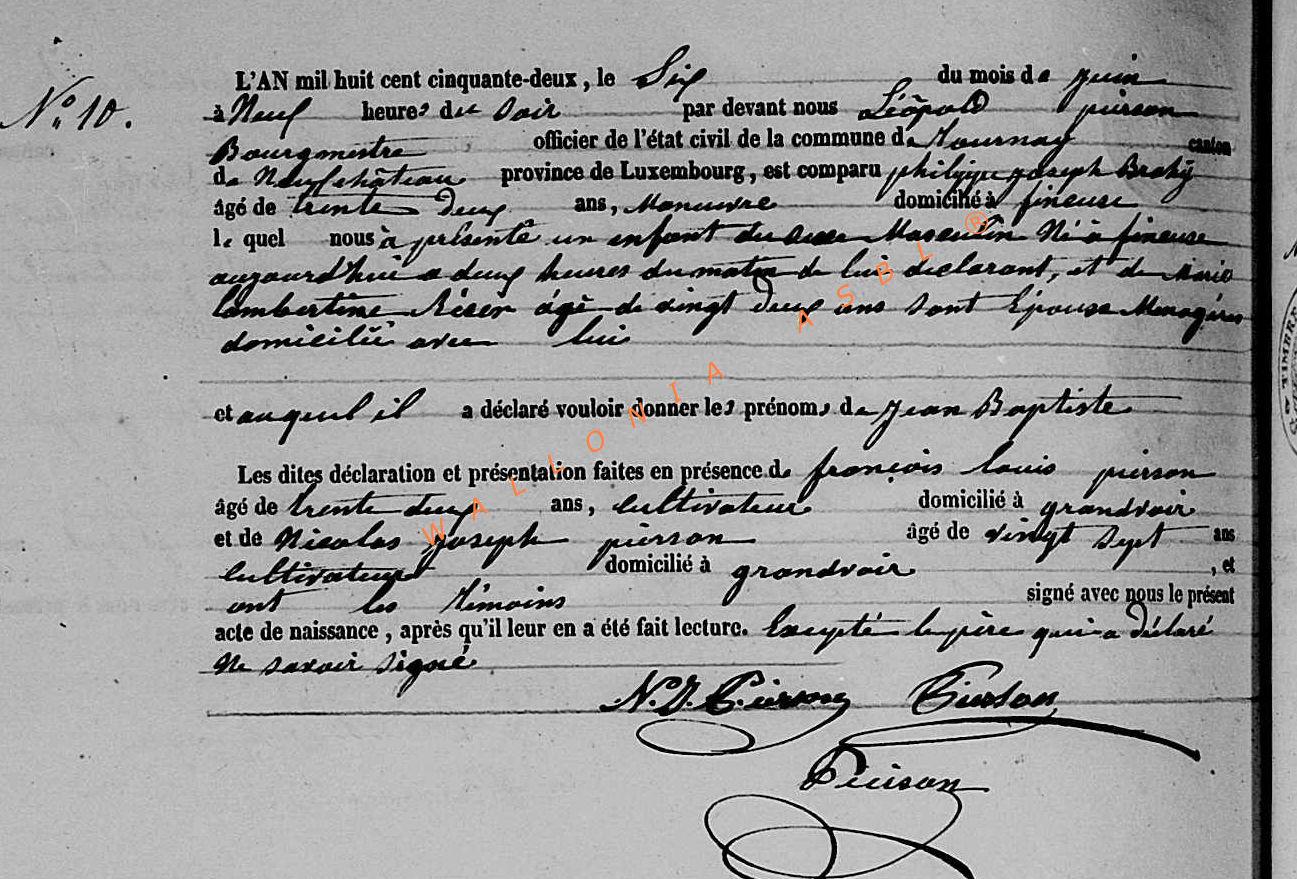 N° 10.
L'AN mil huit cent cinquante-deux, le Six du mois de juin
à Neuf heures du Soir par devant nous Léopold pierson
Bourgmestre officier de l'état civil de la commune de Tournay canton
de Neufchâteau province de Luxembourg, est comparu philippe joseph Brahy
âgé de trente deux ans, Manuvre domicilié à fineuse
le quel nous à présenté un enfant du sexe Masculin Né à fineuse
aujourd'hui a deux heures du matin de lui declarant, et de Marie
Lambertine agé de vingt deux ans sont Epouse Menagére
domicilié avec lui
et auquel il a déclaré vouloir donner les prénoms de jean Baptiste
Les dites déclaration et présentation faites en présence de françois louis pierson
âgé de trente deux ans, cultivateur domicilié à grandvoir
et de Nicolas joseph pierson âgé de vingt sept ans
cultivateur domicilié à grandvoir, et
ont les témoins signé avec nous le présent
acte de naissance, après qu'il leur en a été fait lecture. Excepté le père qui a déclaré
Ne savoir signé
N. J. Pierson Pierson
Pierson
WALLONIA ASBL ®
TIMBRE